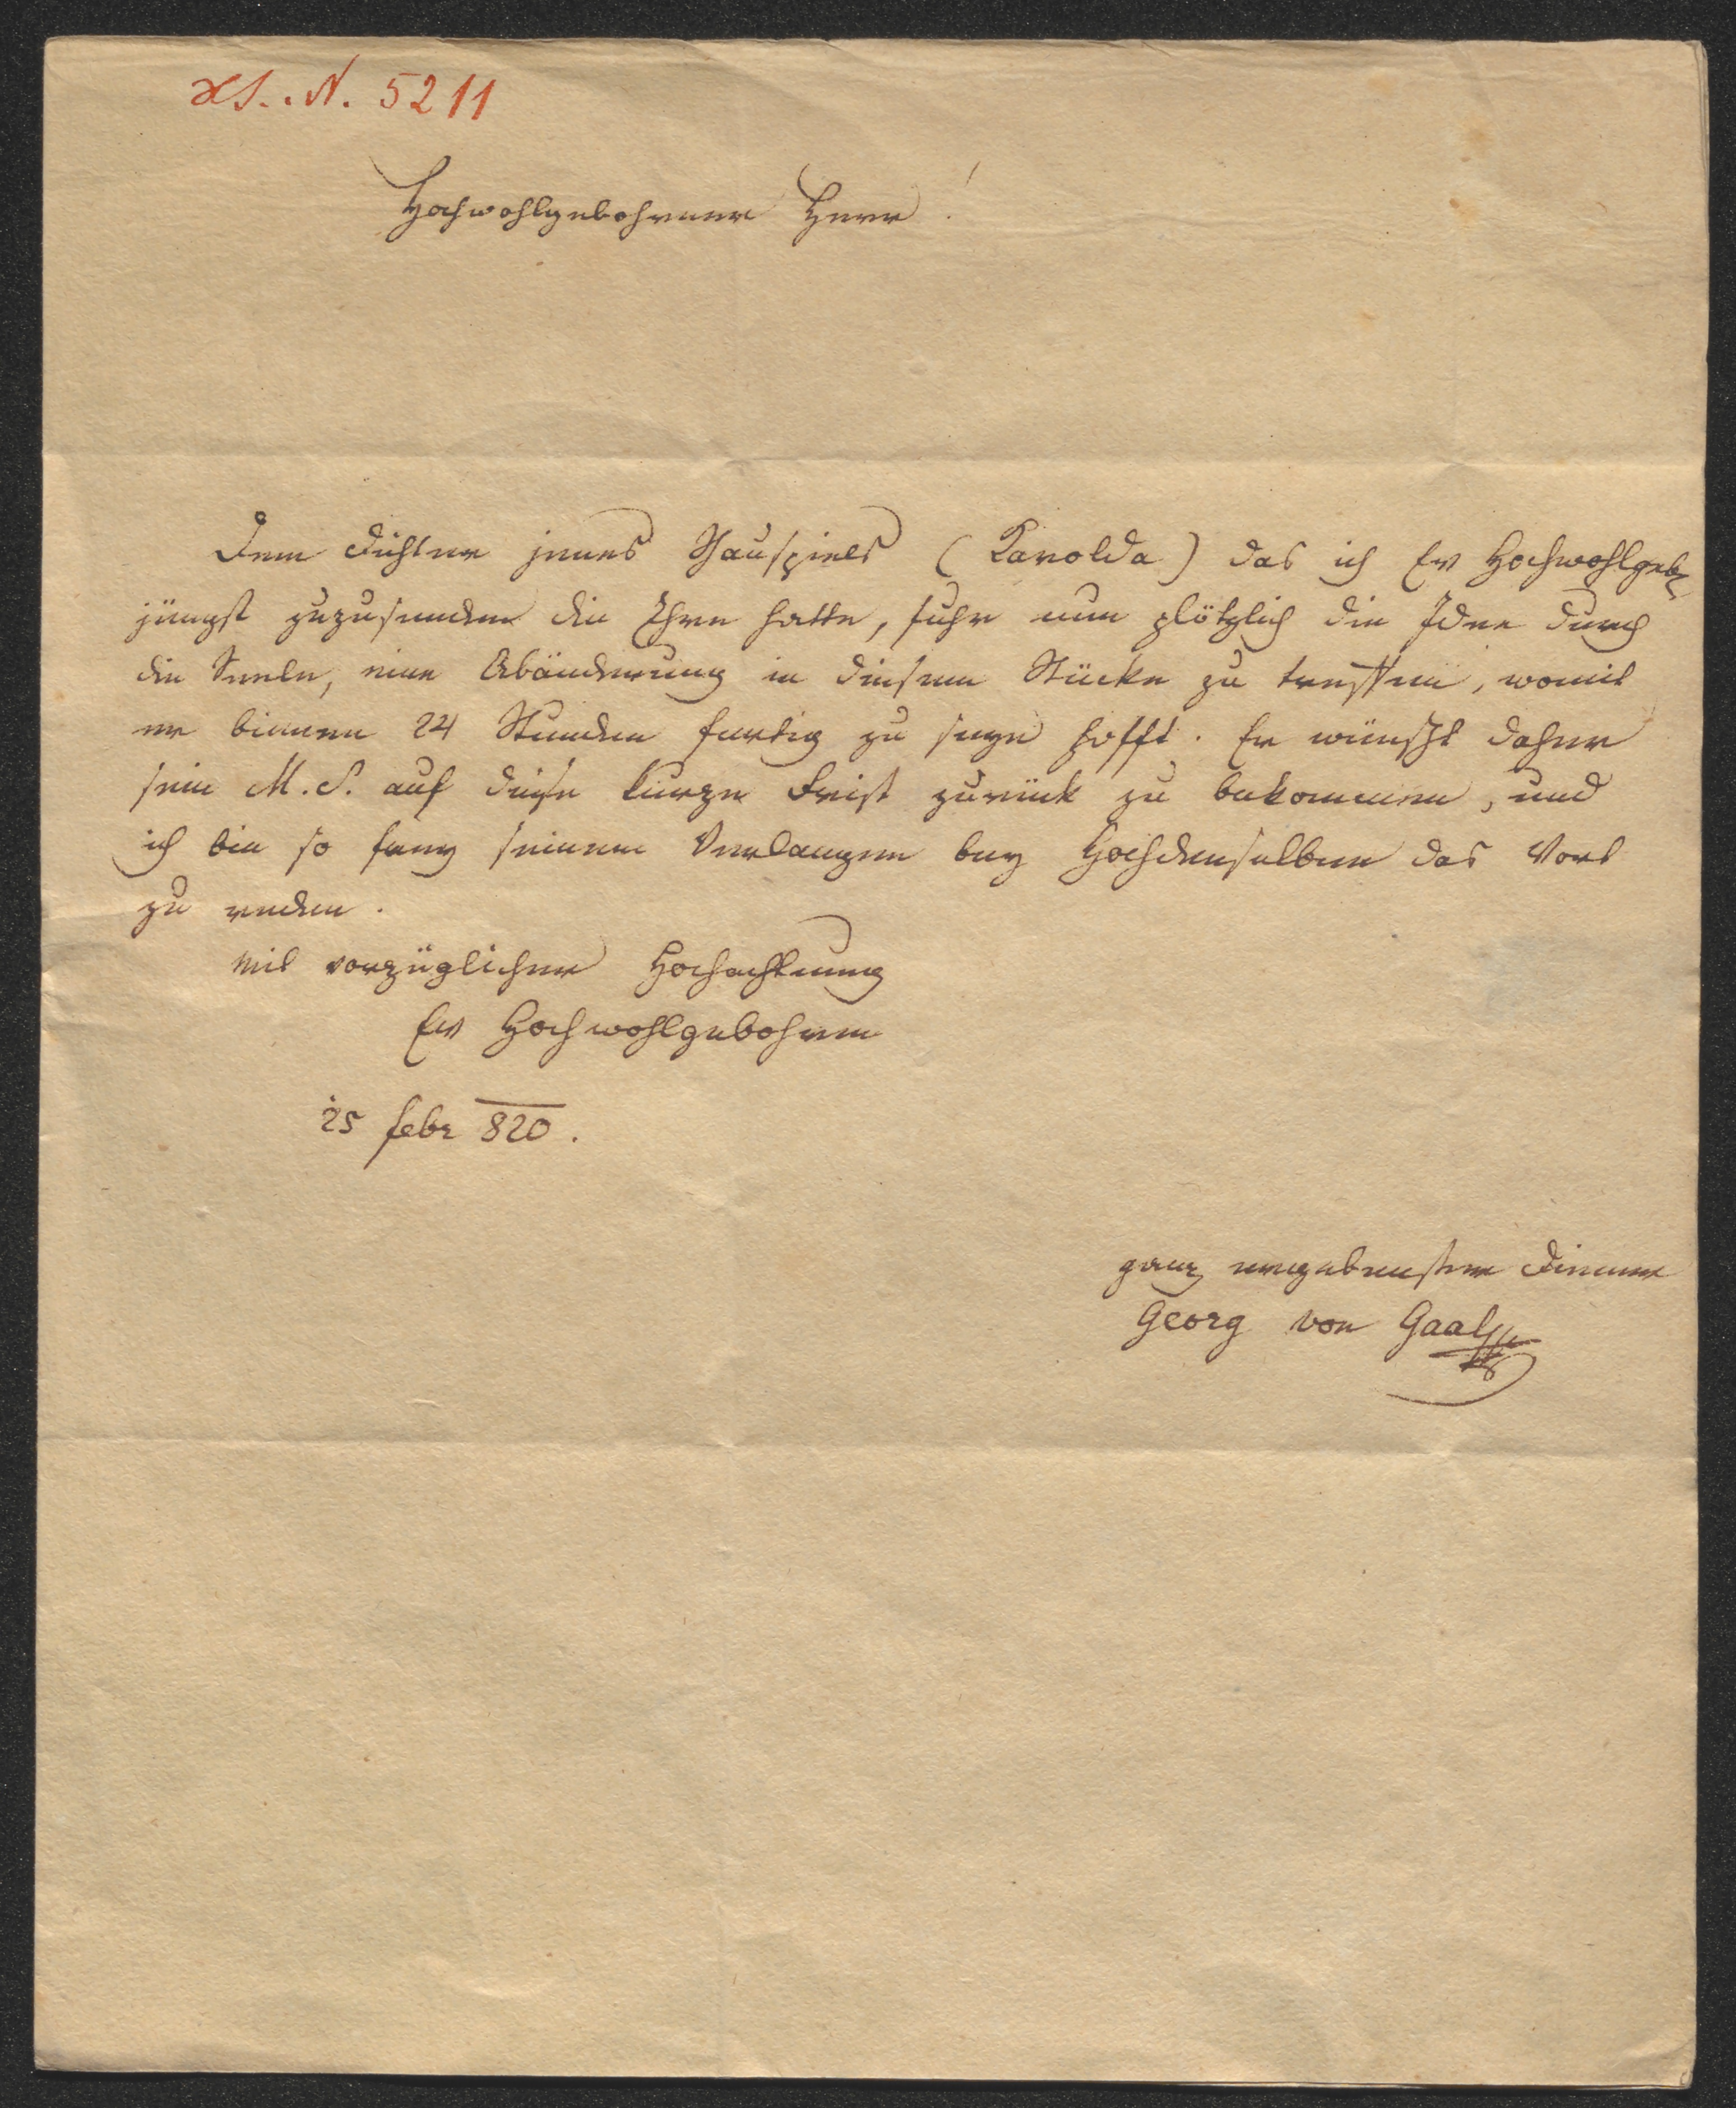 Hs. N. 5211
Hochwohlgebohrener Herr!
Dem Dichter jenes Schauspiels (Karolda) das ich Ew Hochwohlgeb
jüngst zuzusenden die Ehre hatte, fuhr nun plötzlich die Idee durch
die Seele, eine Abänderung in diesem Stücke zu treffen, womit
er binnen 24 Stunden fertig zu seyn hofft. Er wünscht daher
sein M.S. auf diese kurze Frist zurück zu bekommen, und
ich bin so frey seinem Verlangen bey Hochdenselben das Wort
zu reden.
Mit vorzüglicher Hochachtung
Ew Hochwohlgebohren
25 Febr 820.
ganz ergebenster Diener
Georg von Gaal